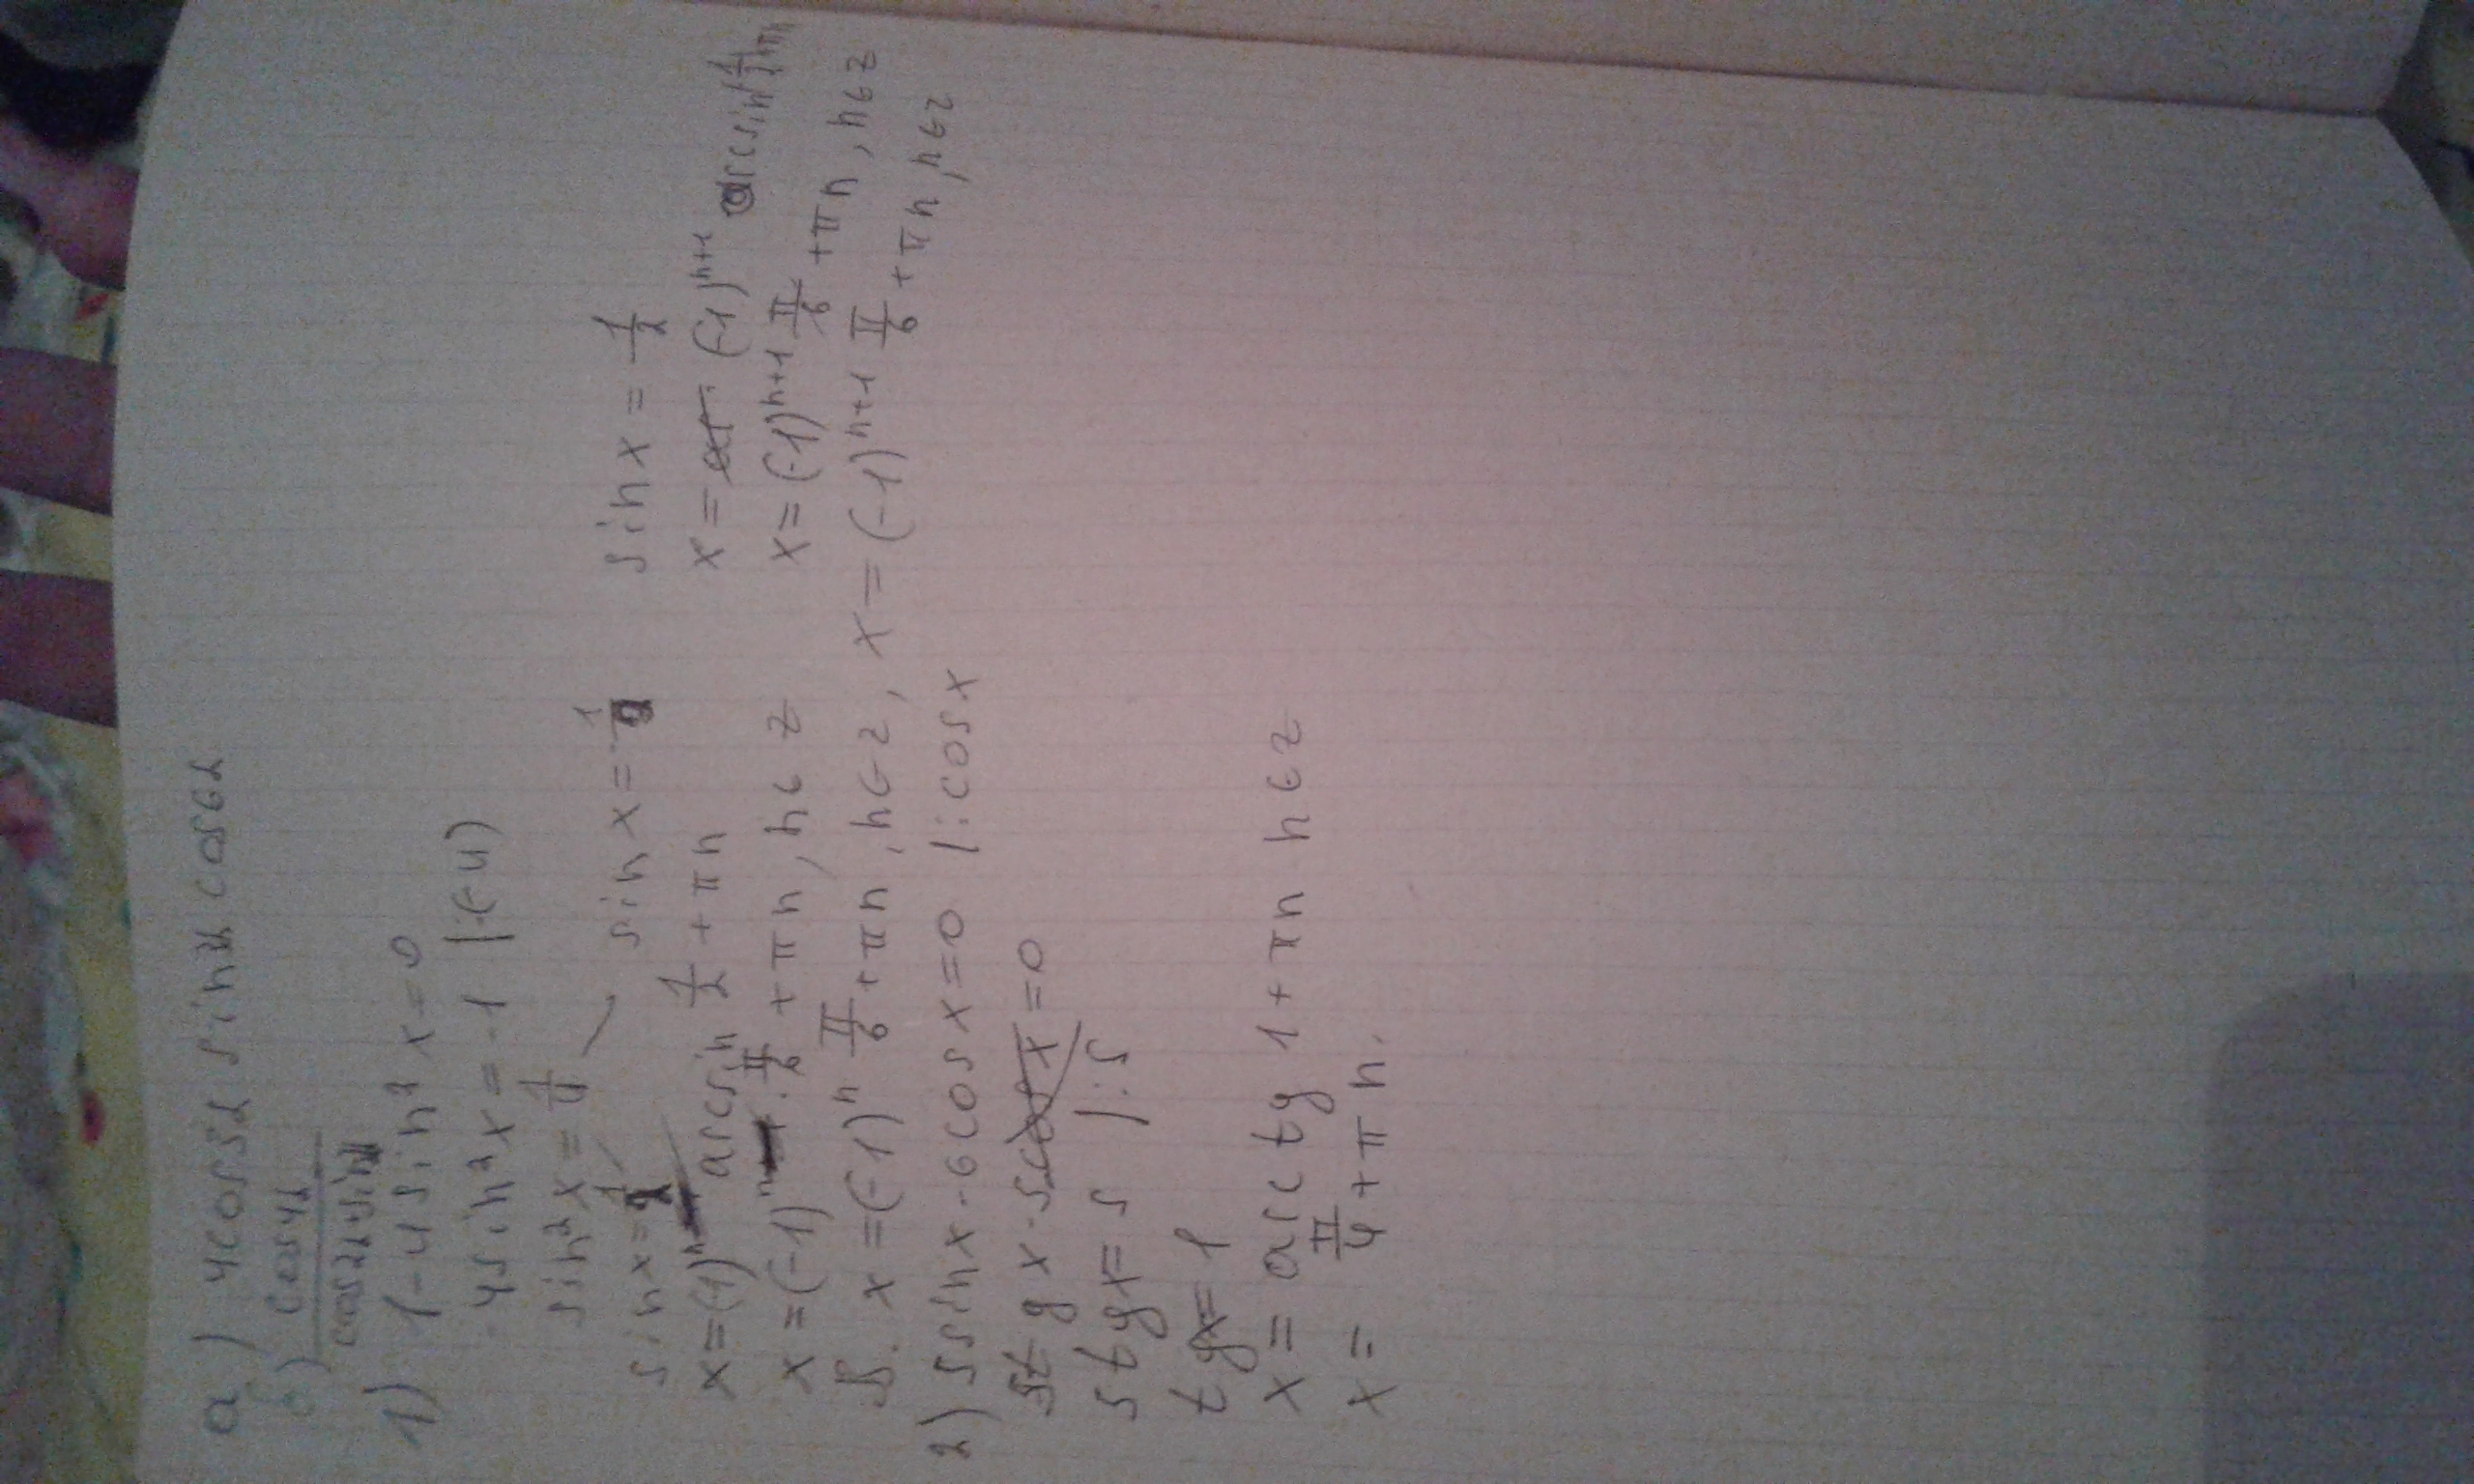 a) 4cos5α sin2α cos6α
б) cos4α / cos2α+sin2α
1) 1-4sin²x=0
-4sin²x=-1 |:(-4)
sin²x=1/4
sinx=1/2 sinx=-1/2 sinx=-1/2
x=(-1)ⁿ arcsin 1/2 +πn x= (-1)ⁿ⁺¹ arcsin 1/2+πn
x=(-1)ⁿ·π/6 +πn, n∈z x=(-1)ⁿ⁺¹ π/6 +πn, n∈z
x=(-1)ⁿ π/6 +πn, n∈z, x=(-1)ⁿ⁺¹ π/6 +πn, n∈z
2) 5sinx-6cosx=0 |:cosx
5tgx-5cosx=0
5tgx=5 |:5
tgx=1
x=arctg 1+πn n∈z
x= π/4 +πn.